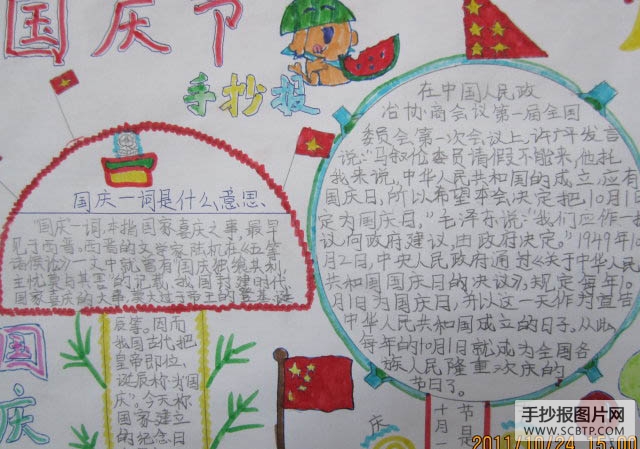 国庆节
手抄报
国庆一词是什么意思
国庆一词,本指国家喜庆之事,最早
见于西晋。西晋的文学家陆机在《五等
诸侯论》一文中就曾有"国庆独飨其利,
主忧莫与其害"的记载,我国封建时代、
国家喜庆的大事,莫
反篡。因而
我国古代把
皇帝即位、
诞辰称为"国
庆"。今天称
国家建立
的纪念日
国
庆
在中国人民政
治协商会议第一届全国
委员会第一次会议上,许广平发言
说:"马叙伦委员请假不能来,他托
我来说,中华人民共和国的成立,应有
国庆日,所以希望本会决定把10月1日
定为国庆日。"毛泽东说:"我们应作一提
议,向政府建议,由政府决定。"1949年10
月2日,中央人民政府通过《关于中华人民
共和国国庆日的决议》,规定每年10
月1日为国庆日,并以这一天作为宣告
中华人民共和国成立的日子。从此,
每年的10月1日就成为全国各
族人民隆重欢庆的
节日了。
庆
十月一
节是
手抄报图片网
WWW.SCBTP.COM
2011/10/24 15:00